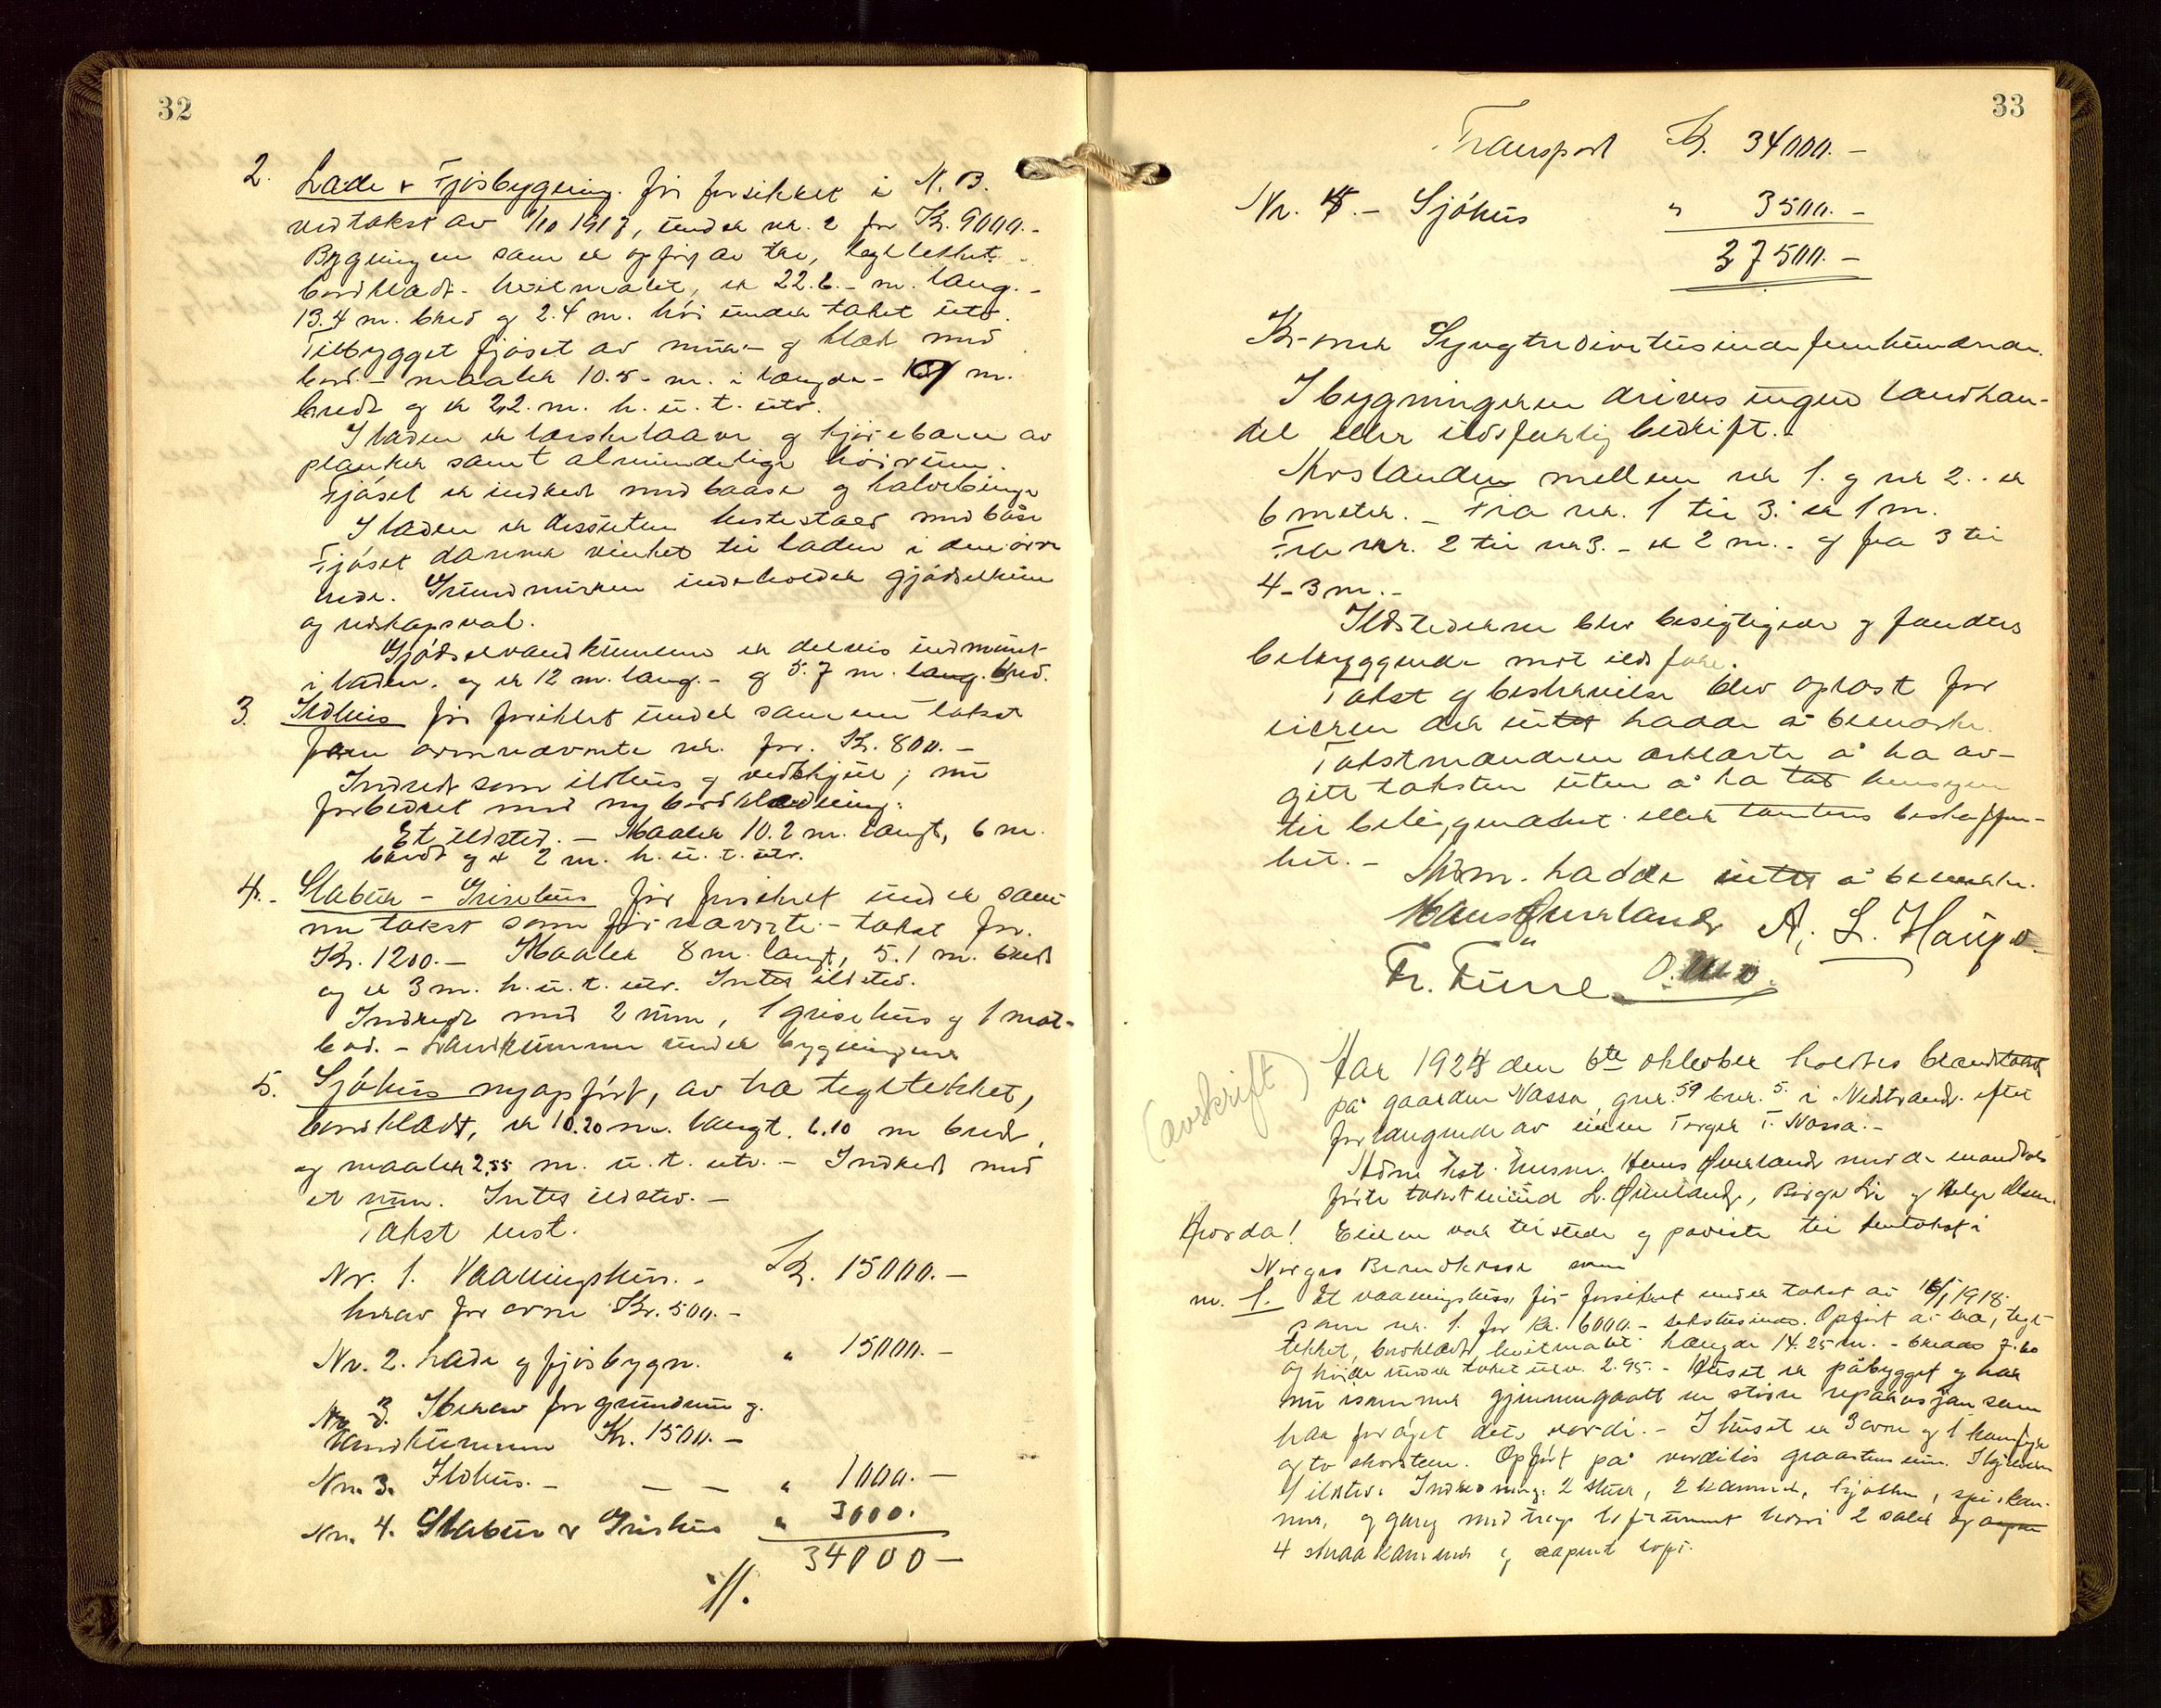 32
2. Lade & Fjøsbygning. før forsikket i N. B.
ved takst av 1/10 1917, under nr. 2 for Kr. 9000.-
Bygningen som er opført av tre, tegltekket -
bordklædt - hvitmalet, er 22.6.- m. lang. -
13.4 m. bred og 2.4 m. høi under taket utv.
Tilbygget fjøset av mur - og klædt med
bord. - maaler 10.5 - m. i længde - m.
bredt og er 2,2. m. h. u. t. utv.
I laden er tærskelaave og kjørebane av
planker samt almindelige høirum.
Fjøset er indredt med baase og kalvebinge
I laden er dessuten hestestald med båse
Fjøset danner vinkel til laden i den øvre
ende. Grundmuren indeholder gjødselkum
og redskapsval.
Gjødselvandkummen er delvis indmuret
i laden. og er 12 m. lang. - og 5.7 m. lang. bred.
3. Ildhus før forsikket under samme takst
som ovennævnte nr. for. Kr. 800. -
Indredt som ildhus og vedskjul; nu
forbedret med ny bordklædning.
Et ildsted. - Maaler 10.2 m. langt, 6 m.
bredt og er 2 m. h. u. t. utv.
4. - Stabur - Grisehus før forsikret under sam-
me takst som før nævnte - takst for.
Kr. 1200. - Maaler 8 m. langt, 5.1 m. bredt
og er 3 m. h. u. t. utv. Intet ildsted.
Indredt med 2 rum, 1 grisehus og 1 mat-
bod. - Landkummen under bygningene
5. Sjøhus nyopført, av træ tegltekket,
bordklædt, er 10.20 m. langt. 6.10 m bredt,
og maaler 2,55 m. u. t. utv. - Indredt med
et rum. Intet ildsted. -
Takst enst.
Nr. 1. Vaaningshus. - Kr. 15000. -
herav for ovne Kr. 500. -
Nr. 2. Lade og fjøsbygn. " 15000. -
Herav for grundmur og
vandkummen Kr. 1500. -
Nr. 3. Ildhus. - - - " 1000. -
Nr. 4. Stabur & Grishus " 3000.
34000 -
./.
33
Transport Kr. 34000. -
Nr. 5. - Sjøhus " 3500. -
37500. -
Kr-oner Syvogtredivetusindefemhundrede.
I bygningerne drives ingen landhan-
del eller ildsfarlig bedrift. -
Avstanden mellem nr 1. og nr 2.. er
6 meter. - Fra nr. 1 til 3. er 1 m.
Fra nr. 2 til nr 3. - er 2 m. - og fra 3 til
4 - 3 m. -
Ildstederne blev besigtiget og fandtes
betryggende mot ildsfare.
Takst og beskrivelse blev oplæst for
eieren der intet hadde å bemerke.
Takstmændene erklærte å ha av-
gitt taksten uten å ha tat hensyn
til beliggenhet eller tomtens beskaffen-
het. - Adm. hadde intet å bemerke.
Hans Øverland A. L. Haugo
Tr. Tunel O.
(avskrift)
Aar 1924 den 6te oktober holdtes brandtakst
på gaarden Nassa, gnr. 59 bnr. 5. i Nedstrand. efter
forlangende av eieren Torger T. Nassa. -
Adm. Hans Øverland med de mandtals
førte takstmænd L. Østerland, Børge Li og Helge Olsen
Hvorda! Eieren var tilstede og paviste til takst i
Norges Brandkasse som
nr. 1. Et vaaningshus før forsikret under takst av 1918
som nr. 1. for Kr. 6000. - sekstusinde. Opført av træ, tegl-
tekket, bordklædt, hvitmalet Længde 14.25 m. - bredde 7.60
og høide under taket utv. 2.95. - Huset er påbygget og har
nu isommer gjennemgaatt en større reparasjon som
har forøget dets verdi. - I huset er 3 ovne og 1 komfyr
og to skorsten. Opført på verdiløs graastensmur. I kjelderen
1 ildsted. Indredning: 2 stuer, 2 kammer, kjøkken, spiskam-
mer, og gang med trap til förstnævnt hvori 2 saler og
4 smaa kammer og aapent loft.